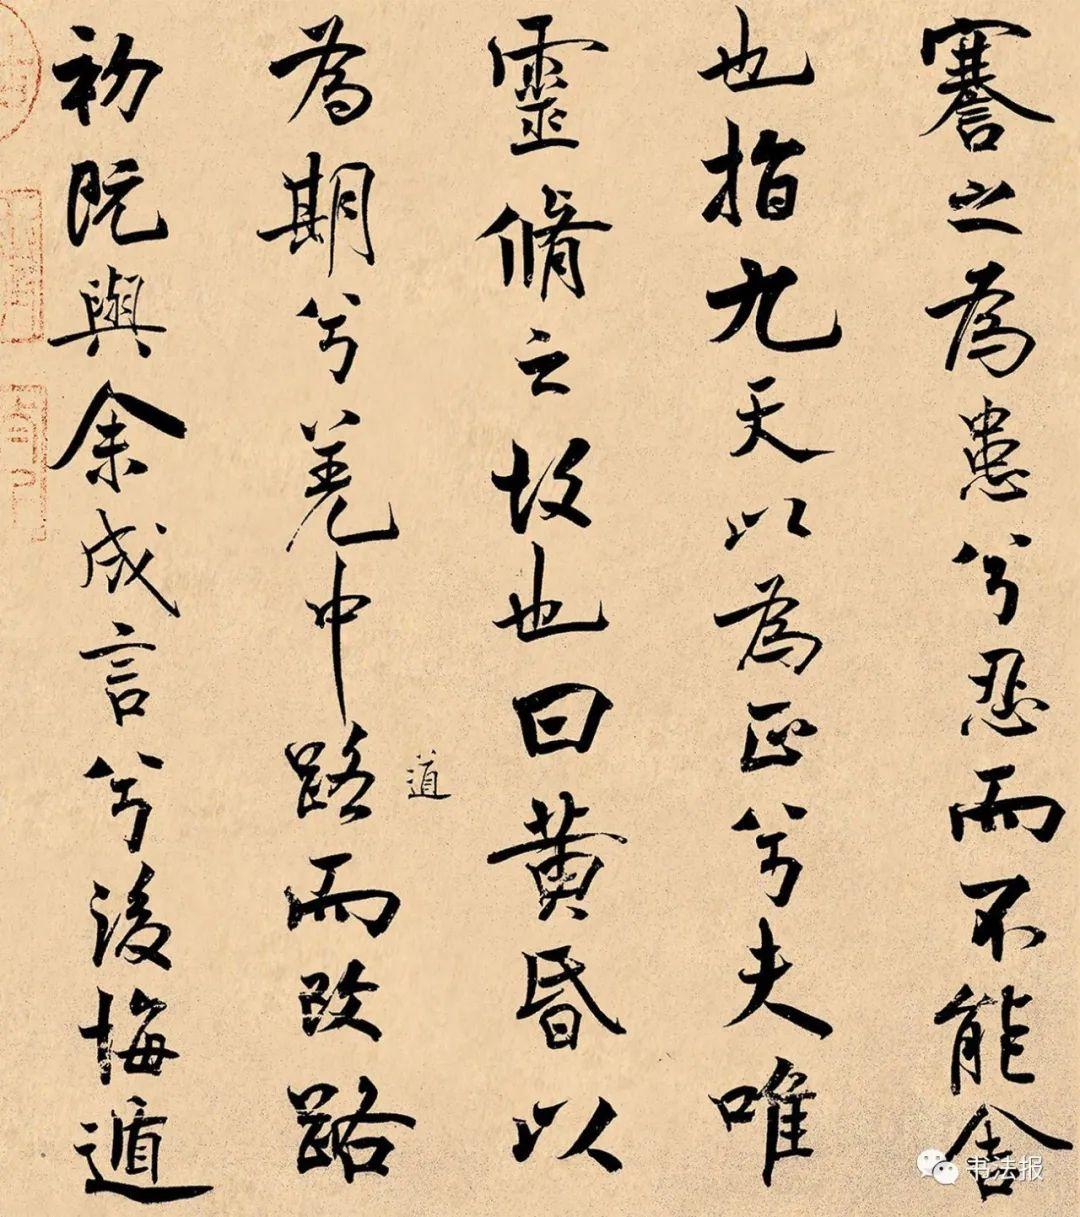 謇之為患兮忍而不能舍
也指九天以為正兮夫唯
靈脩之故也曰黃昏以
為期兮羌中路而改路
道
初既與余成言兮後悔遁
书法报